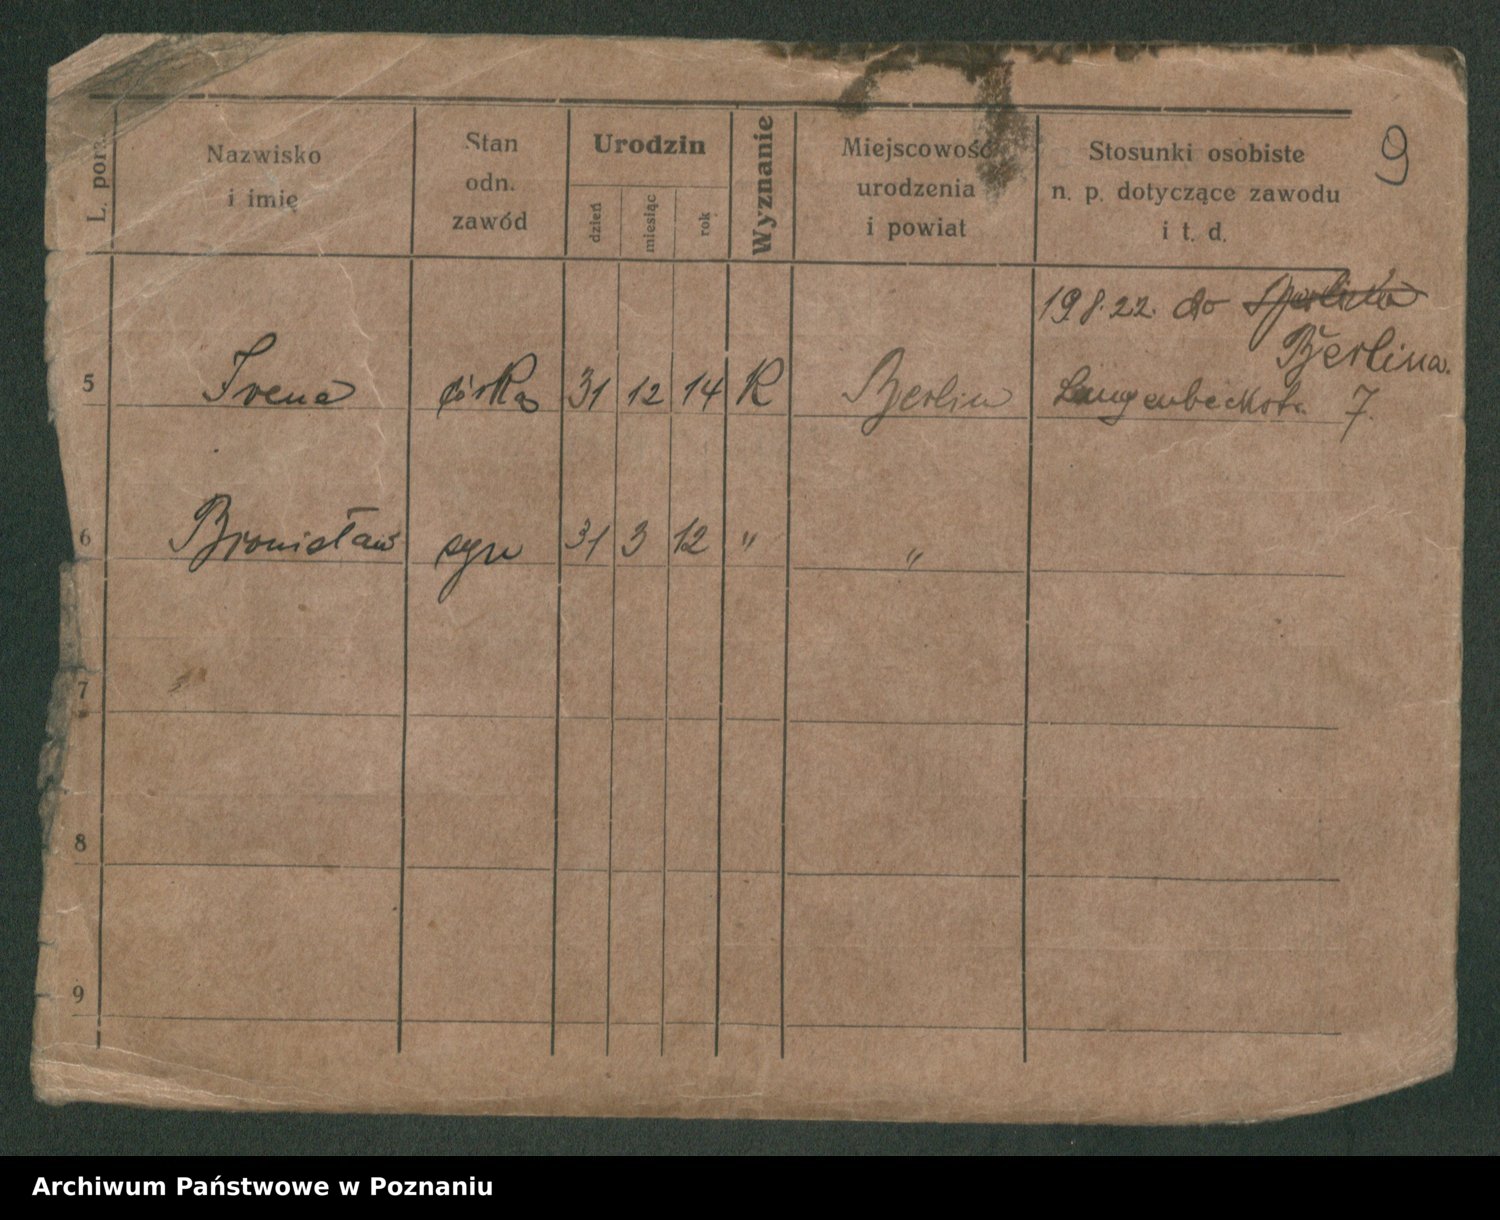 9
L. porz.
Nazwisko
i imię
Stan
odn.
zawód
Urodzin
dzień
miesiąc
rok
Wyznanie
Miejscowość
urodzenia
i powiat
Stosunki osobiste
n. p. dotyczące zawodu
i t. d.
19 8. 22. do
Berlina.
5 Irena córka 31 12 14 K Berlin Langenbeckstr. 7.
6 Bronisław syn 31 3 12 " "
7
8
9
Archiwum Państwowe w Poznaniu